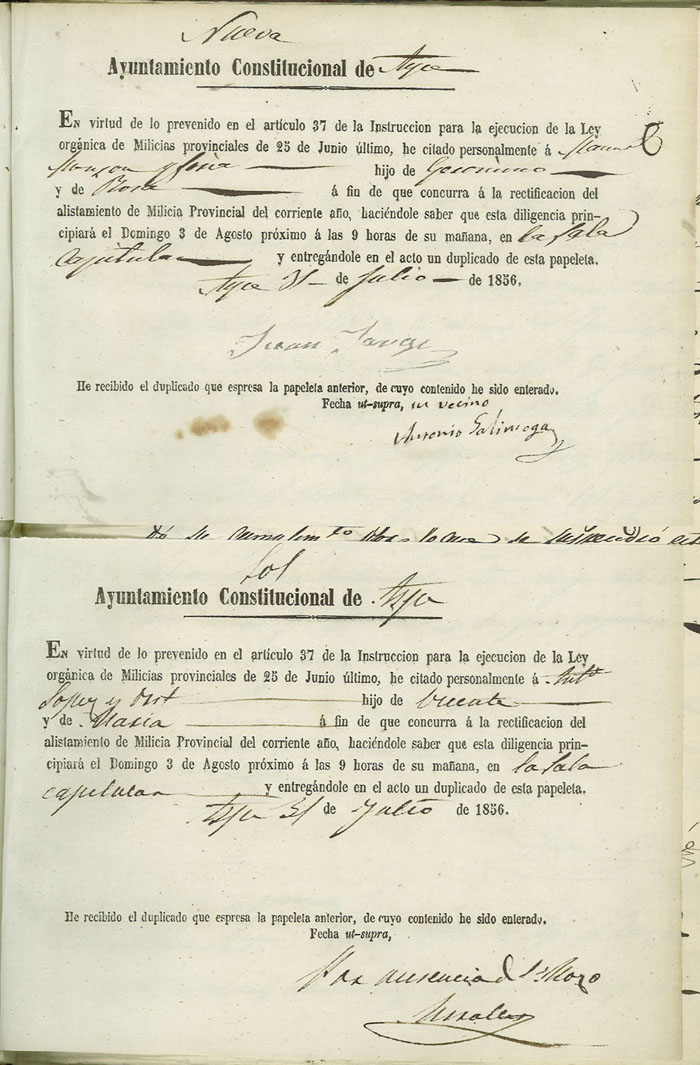 Nueva
Ayuntamiento Constitucional de Aspe
EN virtud de lo prevenido en el artículo 37 de la Instruccion para la ejecucion de la Ley
orgánica de Milicias provinciales de 25 de Junio último, he citado personalmente á Manuel
hijo de Geronimo
y de Rosa á fin de que concurra á la rectificacion del
alistamiento de Milicia Provincial del corriente año, haciéndole saber que esta diligencia prin-
cipiará el Domingo 3 de Agosto próximo á las 9 horas de su mañana, en la sala
capitular y entregándole en el acto un duplicado de esta papeleta.
Aspe 31 de Julio de 1856.
Juan
He recibido el duplicado que espresa la papeleta anterior, de cuyo contenido he sido enterado.
Fecha ut-supra, un vecino
Antonio Galinsoga
Sol
Ayuntamiento Constitucional de Aspe
EN virtud de lo prevenido en el artículo 37 de la Instruccion para la ejecucion de la Ley
orgánica de Milicias provinciales de 25 de Junio último, he citado personalmente á Antº
Lopez y hijo de Vicente
y de Maria á fin de que concurra á la rectificacion del
alistamiento de Milicia Provincial del corriente año, haciéndole saber que esta diligencia prin-
cipiará el Domingo 3 de Agosto próximo á las 9 horas de su mañana, en la sala
capitular y entregándole en el acto un duplicado de esta papeleta.
Aspe 31 de Julio de 1856.
He recibido el duplicado que espresa la papeleta anterior, de cuyo contenido he sido enterado.
Fecha ut-supra,
Por ausencia del Mozo